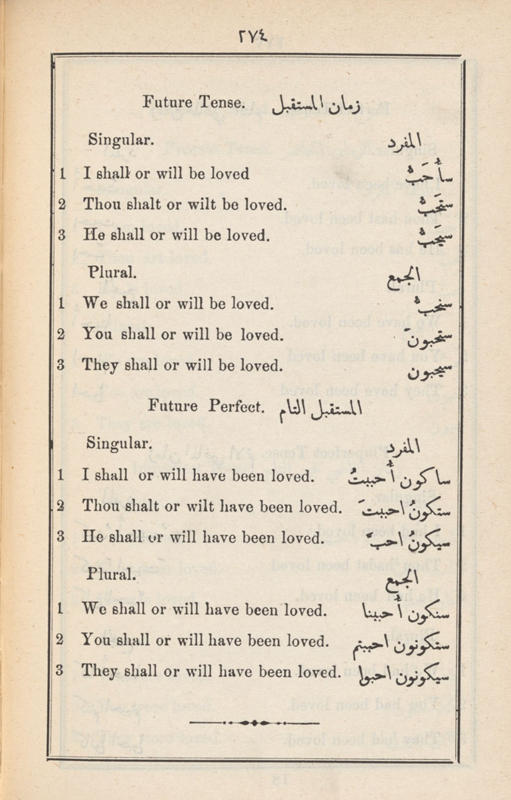 ٢٧٤
Future Tense. زمان المستقبل
Singular. المفرد
1 I shall or will be loved سأُحَبُّ
2 Thou shalt or wilt be loved. ستُحَبُّ
3 He shall or will be loved. سيُحَبُّ
Plural. الجمع
1 We shall or will be loved. سنحبُّ
2 You shall or will be loved. ستحبونَ
3 They shall or will be loved. سيحبون
Future Perfect. المستقبل التام
Singular. المفرد
1 I shall or will have been loved. ساكون أُحببتُ
2 Thou shalt or wilt have been loved. ستكونُ احببتَ
3 He shall or will have been loved. سيكون احبَّ
Plural. الجمع
1 We shall or will have been loved. سنكون أُحببنا
2 You shall or will have been loved. ستكونون احببتم
3 They shall or will have been loved. سيكونون احبوا